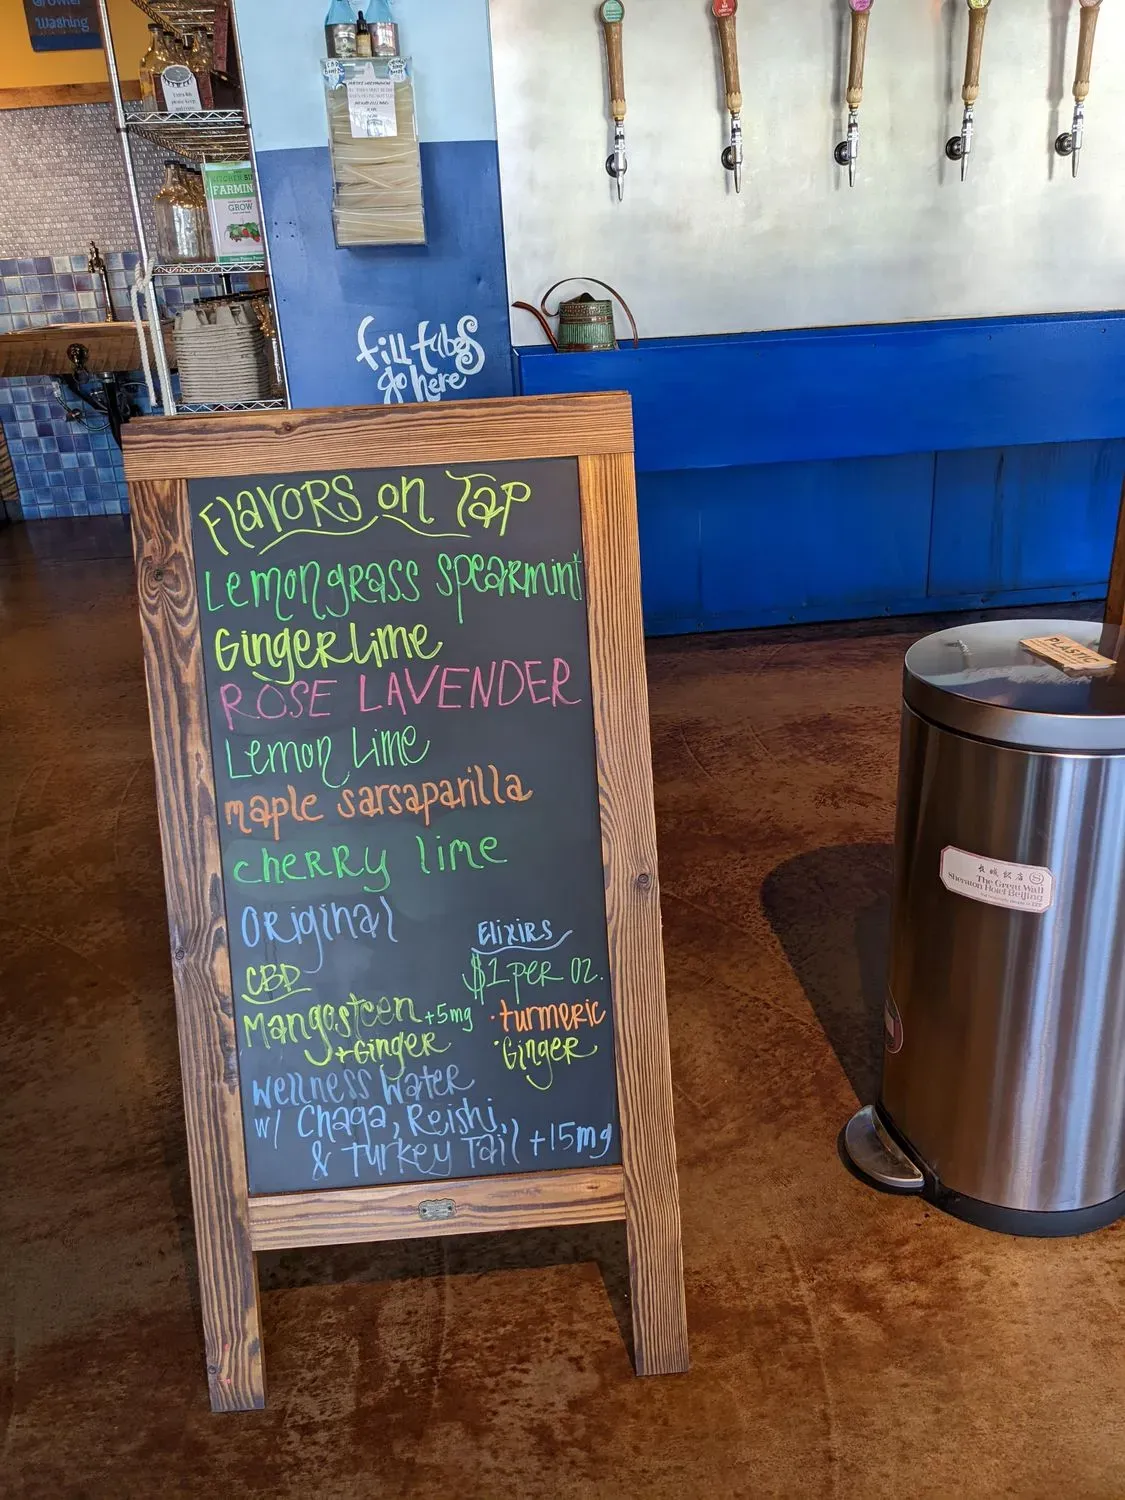 Growler
Washing
KITCHEN SINK
FARMIN
GROW
fill tubes
go here
FLAVORS on TAP
Lemongrass spearmint
Ginger Lime
ROSE LAVENDER
Lemon Lime
maple sarsaparilla
cherry lime
Original
ELIXIRS
$1 PER OZ.
• turmeric
• Ginger
CBD
Mangosteen +5mg
+Ginger
Wellness Water
w/ Chaga, Reishi,
& Turkey Tail +15mg
PLASTIC
The Great Wall
Sheraton Hotel Beijing